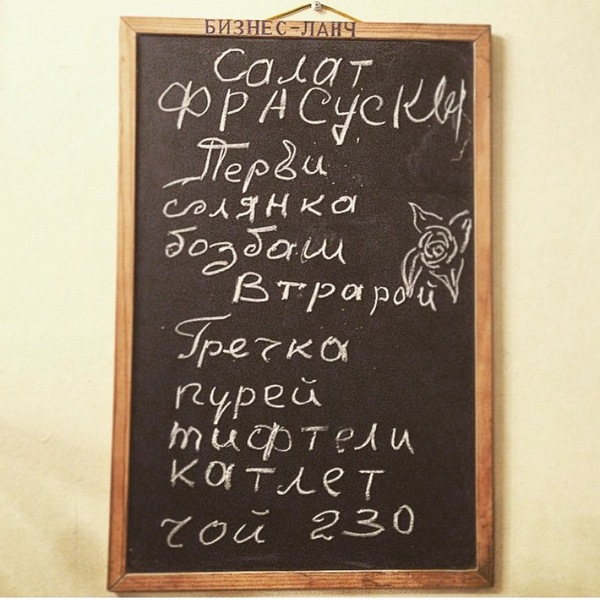 БИЗНЕС-ЛАНЧ
Салат
ФРАСУСКИ
Перви
солянка
бозбаш
Втрарой
Гречка
пурей
тифтели
катлет
чой 230